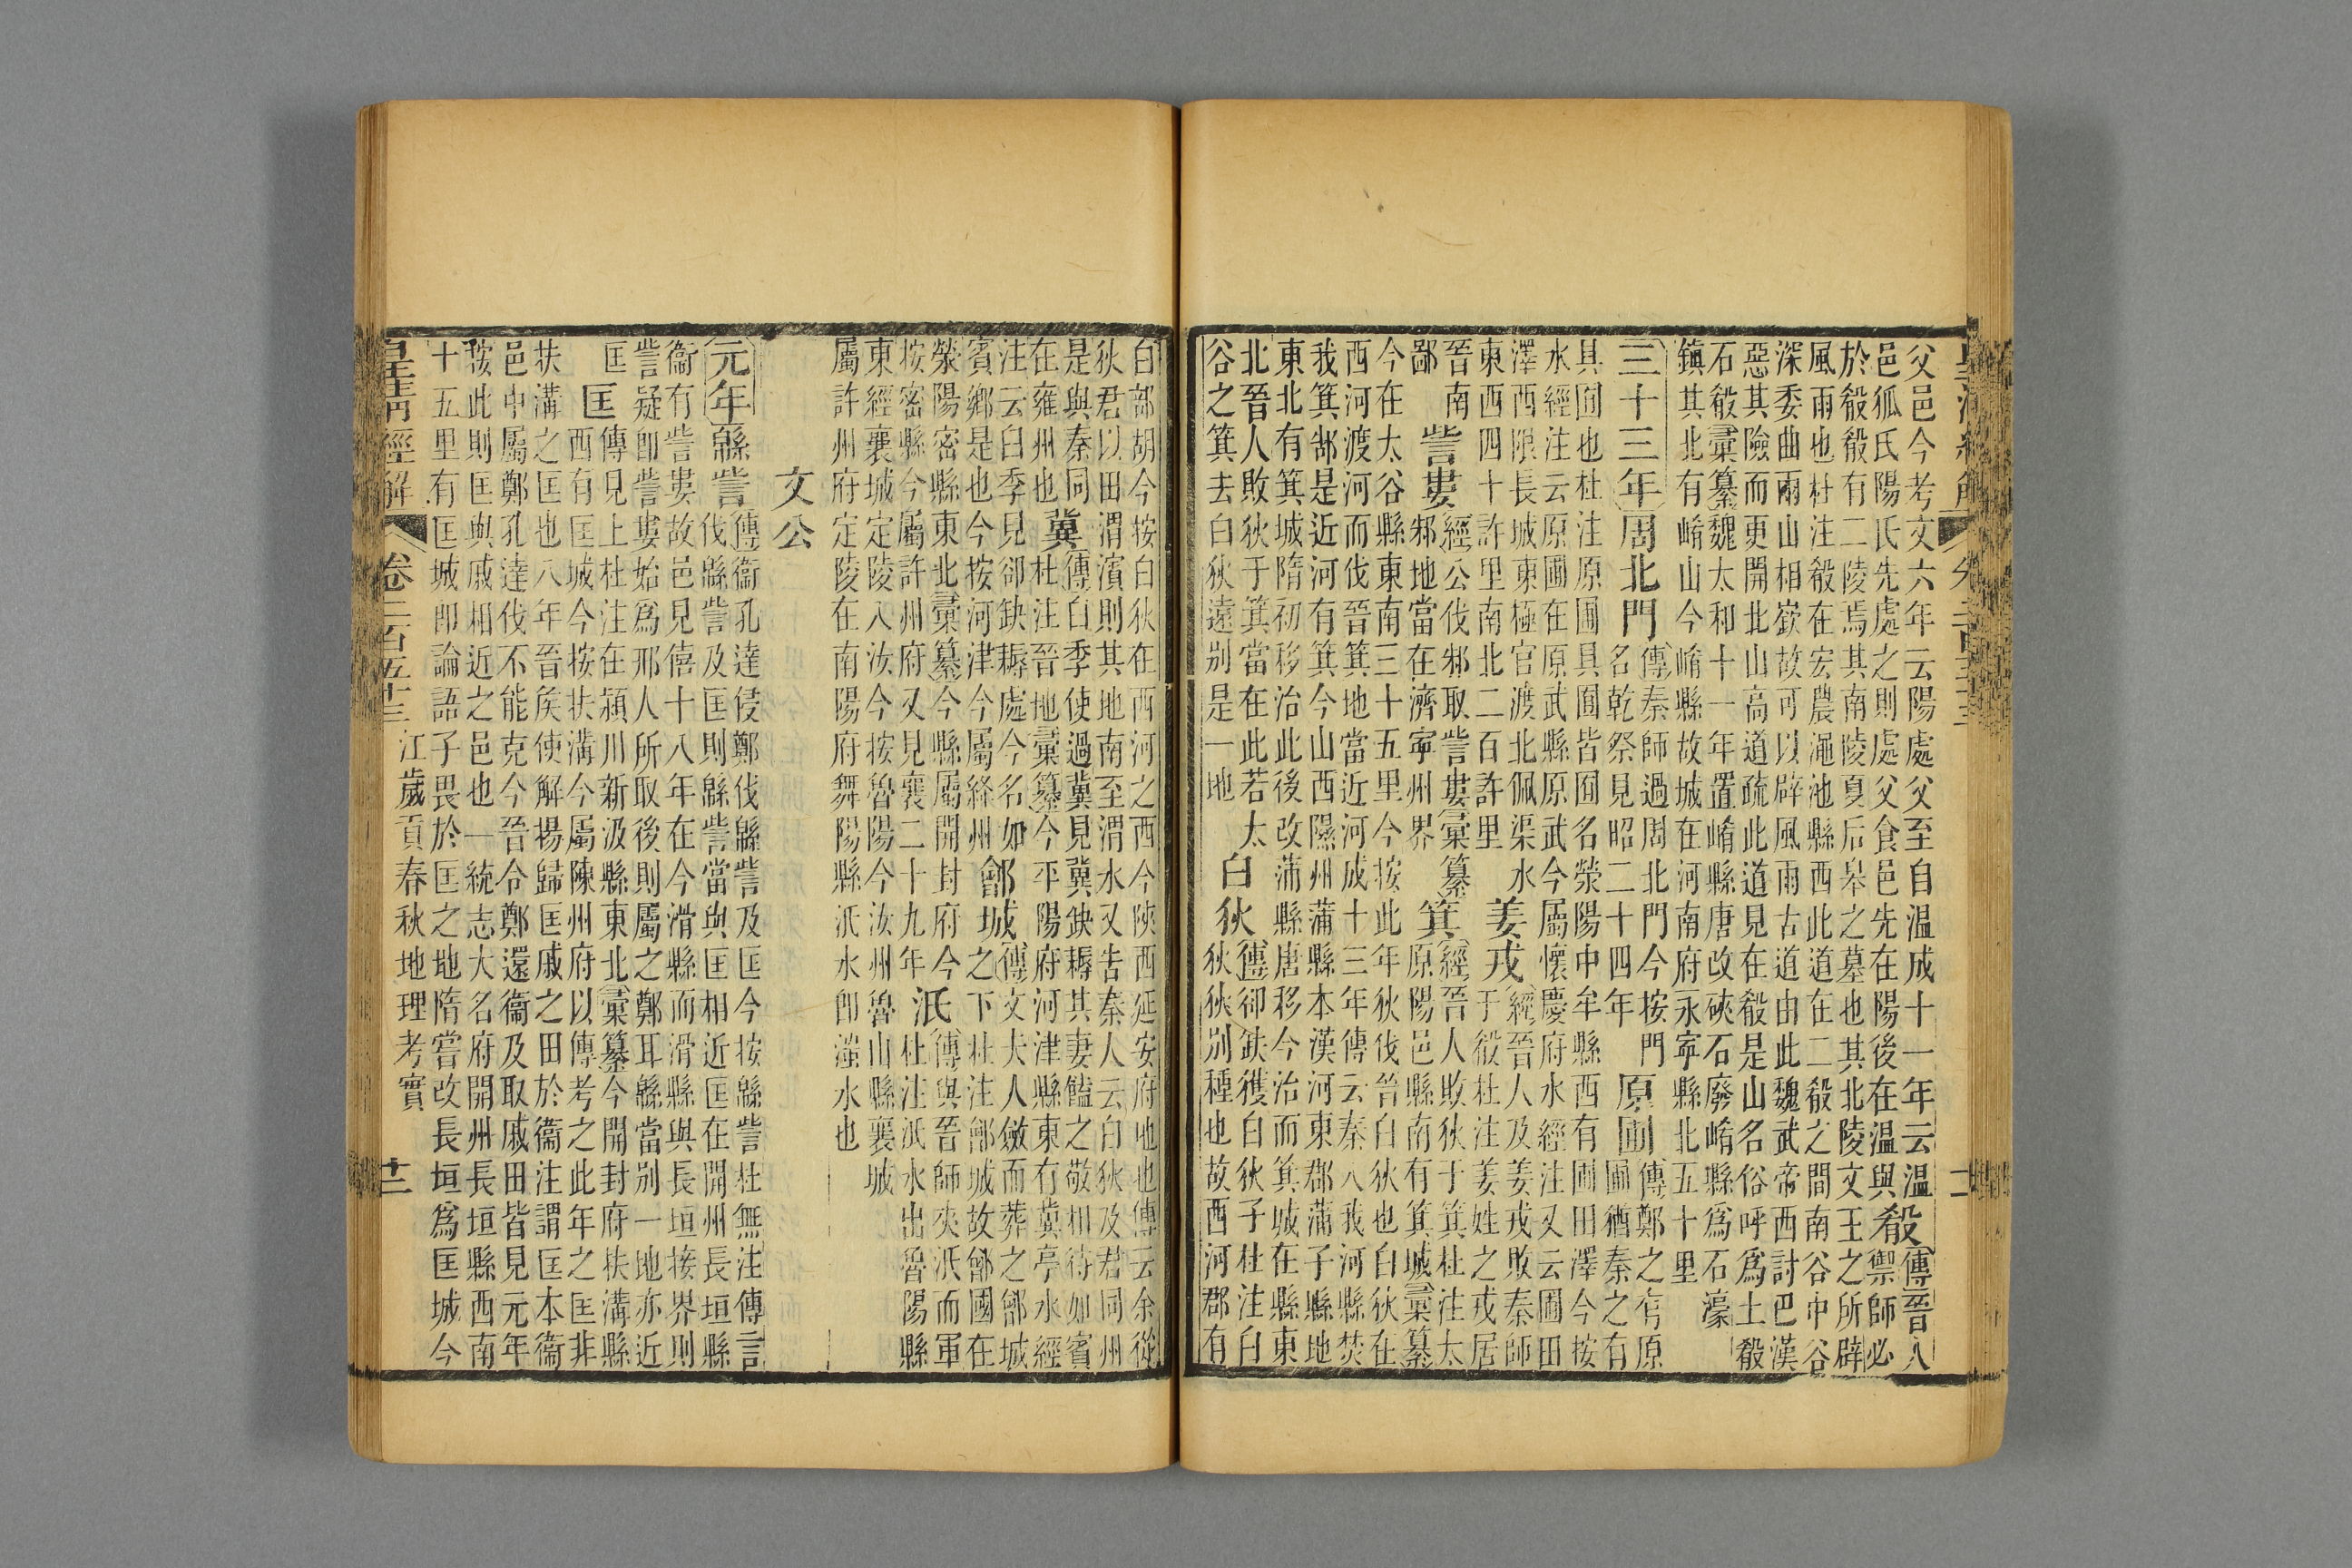 父邑今考文六年云陽處父至自溫成十一年云溫
邑狐氏陽氏先處之則處父食邑先在陽後在溫與
殽
傳晉人
禦師必
於殽殽有二陵焉其南陵夏后皋之墓也其北陵文王之所辟
風雨也杜注殽在宏農澠池縣西此道在二殽之間南谷中谷
深委曲兩山相嶔故可以辟風雨古道由此魏武帝西討巴漢
惡其險而更開北山高道疏此道見在殽是山名俗呼爲土殽
石殽彙纂魏太和十一年置崤縣唐改硤石廢崤縣爲石濠
鎮其北有崤山今崤縣故城在河南府永寧縣北五十里
三十三年
周北門
傳秦師過周北門今按門
名乾祭見昭二十四年
原圃
傳鄭之有原
圃猶秦之有
具囿也杜注原圃具囿皆囿名滎陽中牟縣西有圃田澤今按
水經注云原圃在原武縣原武今屬懷慶府水經注又云圃田
澤西限長城東極官渡北佩渠水
東西四十許里南北二百許里
姜戎
經晉人及姜戎敗秦師
于殽杜注姜姓之戎居
晉南
鄙
訾婁
經公伐邾取訾婁彙纂
邾地當在濟寧州界
箕
經晉人敗狄于箕杜注太
原陽邑縣南有箕城彙纂
今在太谷縣東南三十五里今按此年狄伐晉白狄也白狄在
西河渡河而伐晉箕地當近河成十三年傳云秦入我河縣焚
我箕郜是近河有箕今山西隰州蒲縣本漢河東郡蒲子縣地
東北有箕城隋初移治此後改蒲縣唐移今治而箕城在縣東
北晉人敗狄于箕當在此若太
谷之箕去白狄遠別是一地
白狄
傳卻缺獲白狄子杜注白
狄狄別種也故西河郡有
白部胡今按白狄在西河之西今陝西延安府地也傳云余從
狄君以田渭濱則其地南至渭水又告秦人云白狄及君同州
是與秦同
在雍州也
冀
傳臼季使過冀見冀缺耨其妻饁之敬相待如賓
杜注晉地彙纂今平陽府河津縣東有冀亭水經
注云臼季見卻缺耨處今名如
賓鄉是也今按河津今屬絳州
鄶城
傳文夫人斂而葬之鄶城
之下杜注鄶城故鄶國在
滎陽密縣東北彙纂今縣屬開封府今
按密縣今屬許州府又見襄二十九年
泜
傳與晉師夾泜而軍
杜注泜水出魯陽縣
東經襄城定陵入汝今按魯陽今汝州魯山縣襄城
屬許州府定陵在南陽府舞陽縣泜水即滍水也
文公
元年
緜訾
傳衞孔達侵鄭伐緜訾及匡今按緜訾杜無注傳言
伐緜訾及匡則緜訾當與匡相近匡在開州長垣縣
衞有訾婁故邑見僖十八年在今滑縣而滑縣與長垣接界則
訾疑即訾婁始爲邢人所取後則屬之鄭耳緜當別一地亦近
匡
匡
傳見上杜注在潁川新汲縣東北彙纂今開封府扶溝縣
西有匡城今按扶溝今屬陳州府以傳考之此年之匡非
扶溝之匡也八年晉矦使解揚歸匡戚之田於衞注謂匡本衞
邑中屬鄭孔達伐不能克今晉令鄭還衞及取戚田皆見元年
按此則匡與戚相近之邑也一統志大名府開州長垣縣西南
十五里有匡城即論語子畏於匡之地隋嘗改長垣爲匡城今
皇淸經解 卷二百五十三 江歲貢春秋地理考實 十二